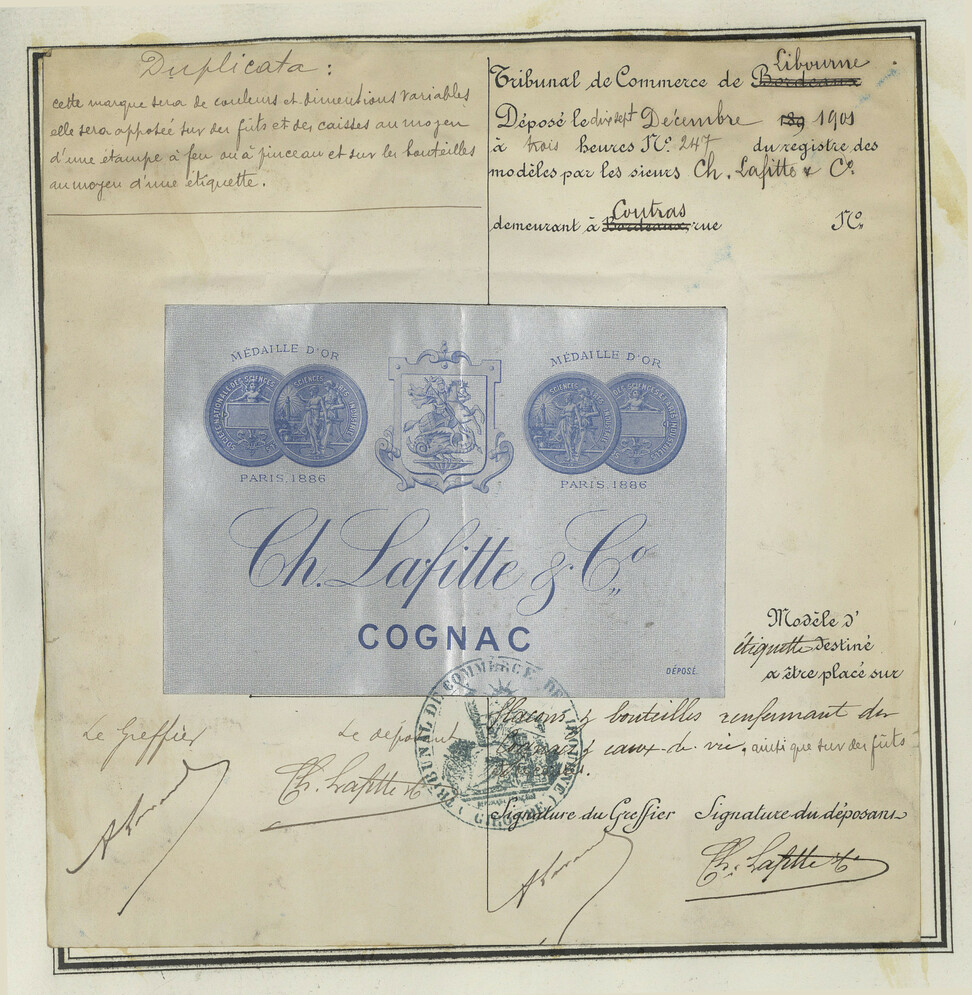 Duplicata :
cette marque sera de couleurs et dimentions variables
elle sera apposée sur des fûts et des caisses au moyen
d'une étampe à feu ou à pinceau et sur les bouteilles
au moyen d'une étiquette.
Libourne
Tribunal de Commerce de Bordeaux
Déposé le dix sept Décembre 189 1901
à trois heures No. 247 du registre des
modèles par les sieurs Ch. Lafitte & Co.
Coutras
demeurant à Bordeaux, rue No.
MÉDAILLE D'OR
MÉDAILLE D'OR
PARIS. 1886
PARIS. 1886
Ch. Lafitte & Co.
COGNAC
DÉPOSÉ.
Modèle d'
étiquette destiné
a être placé sur
flacons & bouteilles renfermant des
cognacs & eaux-de-vie, ainsi que sur des fûts
Le Greffier
Le déposant
Ch. Lafitte & Co
TRIBUNAL DE COMMERCE DE LIBOURNE
( GIRONDE )
Signature du Greffier Signature du déposans
Ch. Lafitte & Co